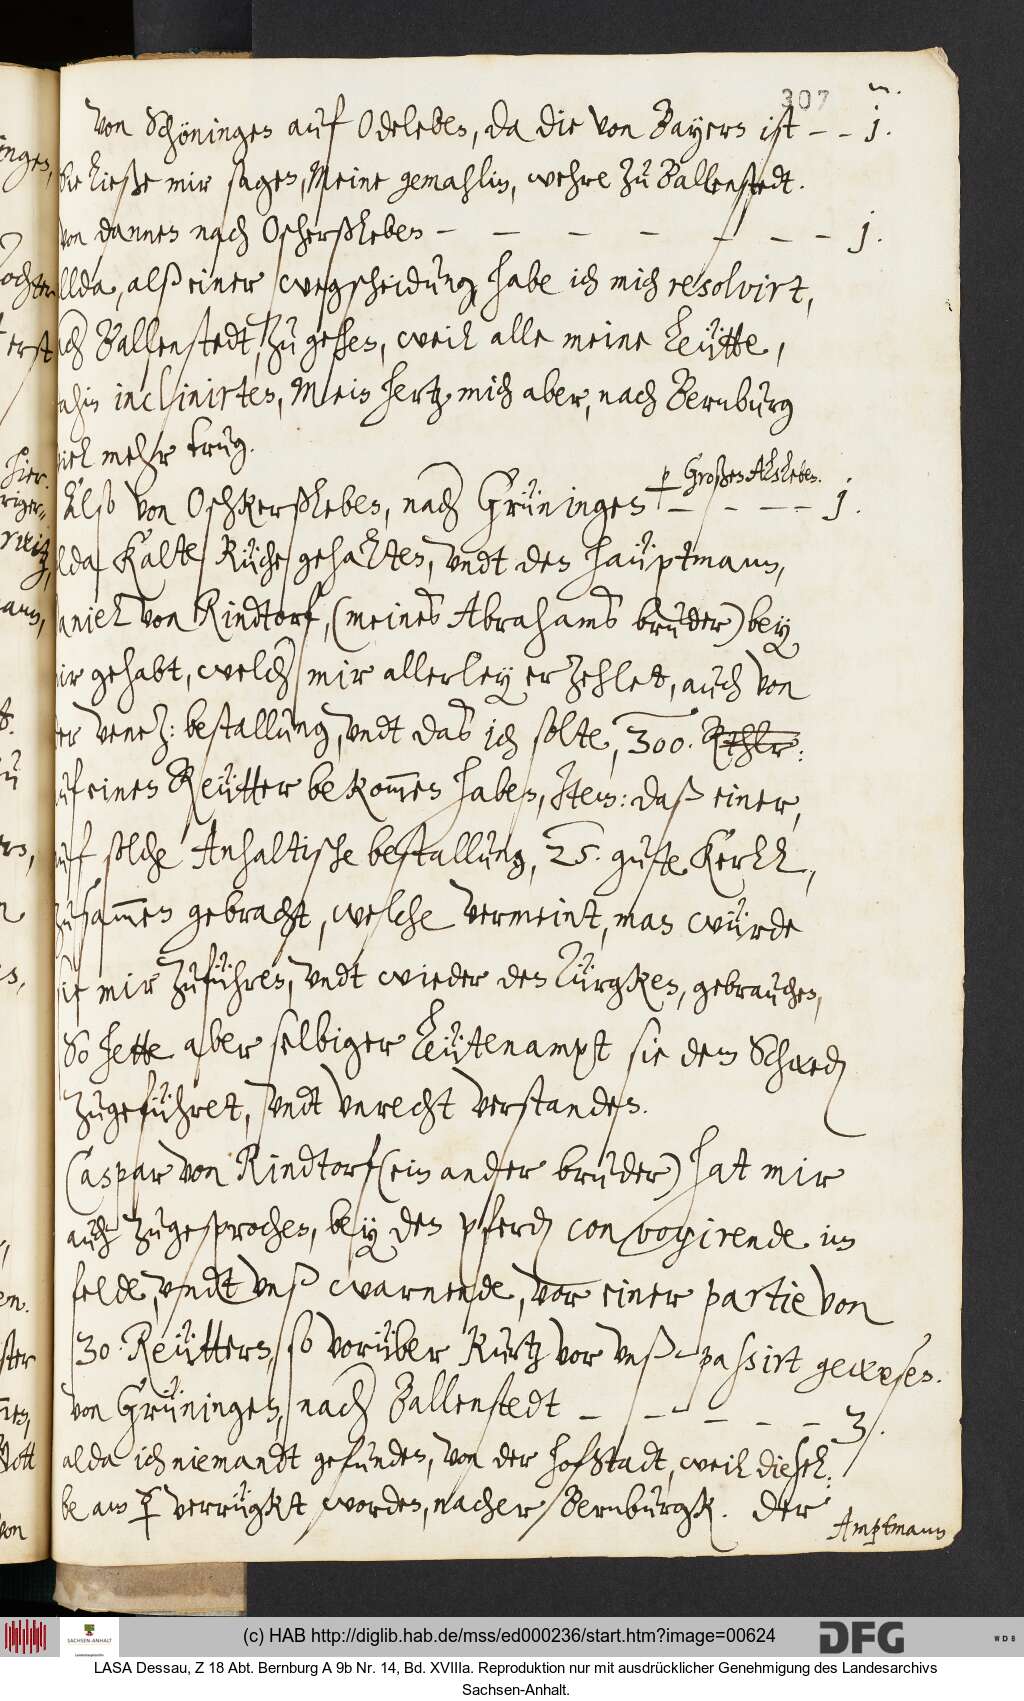 307
m.
von Schöningen auf Odeleben, da die von Bayern ist – – j.
die ließe mir sagen, Meine gemahlin, wehre zu Ballenstedt.
von dannen nach Oscherßleben – – – – – – – j.
allda, alß einer wegscheidung habe ich mich resolvirt,
nach Ballenstedt, zu gehen, weil alle meine Leütte,
dahin inclinirten, Mein hertz mich aber, nach Bernburg
viel mehr trug.
Also von Oschkerßleben, nach Grüningen – – – – – j.
p Großen Alsleben.
alda Kalte Küche gehalten, vndt den haüptmann,
Daniel von Rindtorf, (meines Abrahams bruder) bey
mir gehabt, welcher mir allerley erzehlet, auch von
der Venez: bestallung, vndt das ich solte, 300. Rthlr:
auf einen Reütter bekommen haben, Item: daß einer,
auf solche Anhaltische bestallung, 25. gute Kerll,
zusammen gebracht, welche vermeint, man würde
sie mir zuführen, vndt wieder den Türgken, gebrauchen,
So hette aber selbiger Leütenampt sie den Schwed
zugeführet, vndt vnrecht verstanden.
Caspar von Rindtorf (ein ander bruder) hat mir
auch zugesprochen, bey den pferden convoyirende im
felde, vndt vnß warnende, vor einer partie von
30. Reüttern, so vorüber kurtz vor vnß passirt gewesen.
von Grüningen, nach Ballenstedt – – – – – 3.
alda ich niemandt gefunden, von der hofStadt, weil diesel:
be am ☿ verrügkt worden, nacher Bernburgk. Der
Amptmann
(c) HAB http://diglib.hab.de/mss/ed000236/start.htm?image=00624
DFG
WDB
SACHSEN-ANHALT
LASA Dessau, Z 18 Abt. Bernburg A 9b Nr. 14, Bd. XVIIIa. Reproduktion nur mit ausdrücklicher Genehmigung des Landesarchivs
Sachsen-Anhalt.